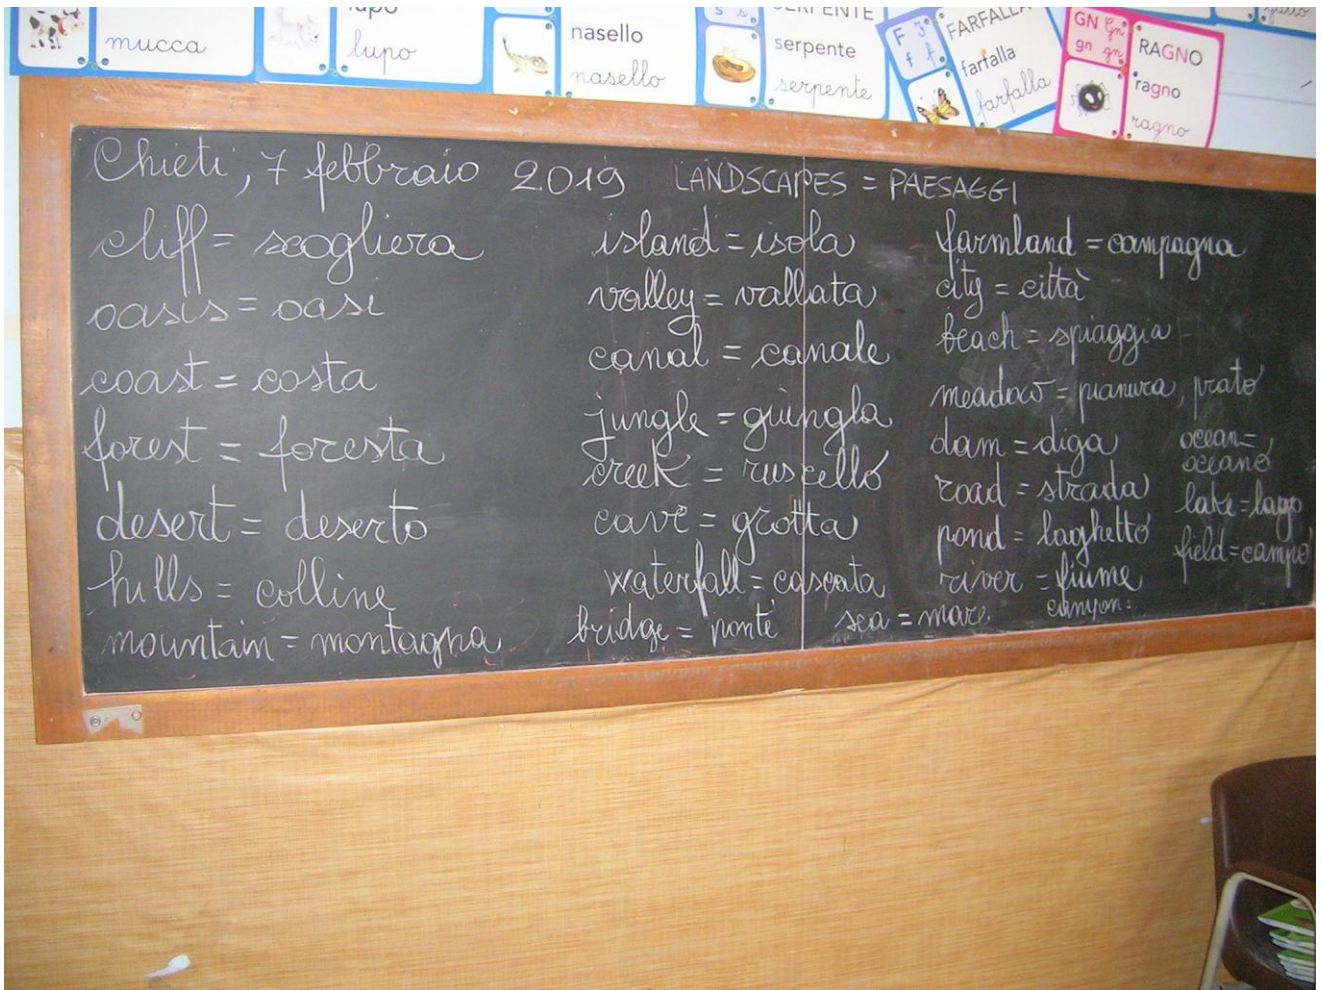 mucca
lupo
lupo
nasello
nasello
s s
SERPENTE
serpente
serpente
F F
f f
FARFALLA
farfalla
farfalla
GN Gn
gn gn
RAGNO
ragno
ragno
Chieti, 7 febbraio 2019 LANDSCAPES = PAESAGGI
cliff = scogliera
oasis = oasi
coast = costa
forest = foresta
desert = deserto
hills = colline
mountain = montagna
island = isola
valley = vallata
canal = canale
jungle = giungla
creek = ruscello
cave = grotta
waterfall = cascata
bridge = ponte
farmland = campagna
city = città
beach = spiaggia
meadow = pianura, prato
dam = diga
road = strada
pond = laghetto
river = fiume
sea = mare
canyon =
ocean =
oceano
lake = lago
field = campo